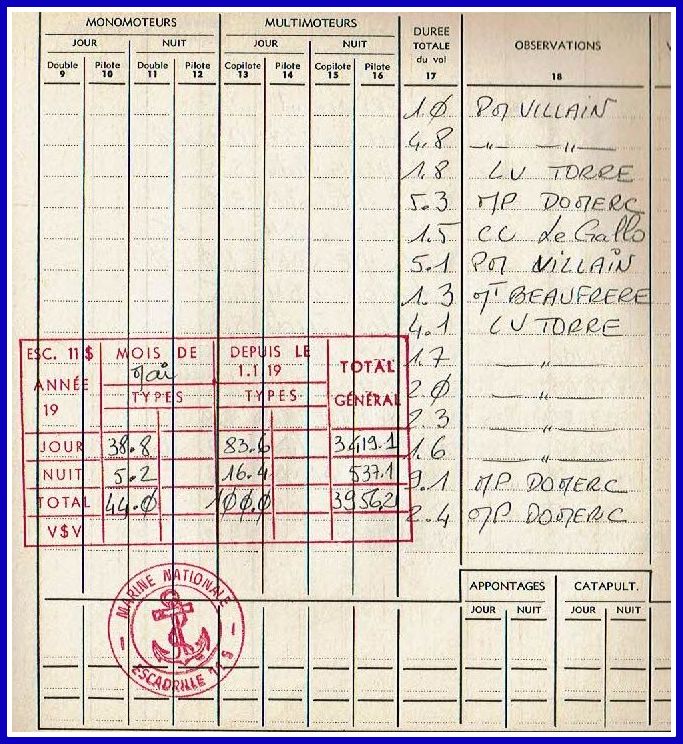 MONOMOTEURS MULTIMOTEURS DUREE TOTALE du vol OBSERVATIONS
JOUR NUIT JOUR NUIT
Double Pilote Double Pilote Copilote Pilote Copilote Pilote
9 10 11 12 13 14 15 16 17 18
1.0 PM VILLAIN
4.8 —〃— —〃—
1.8 LV TORRE
5.3 MP DOMERC
1.5 CC Le Gallo
5.1 PM VILLAIN
1.3 MT BEAUFRERE
4.1 LV TORRE
1.7 —〃—
2.0 —〃—
2.3 —〃—
1.6 —〃—
9.1 MP DOMERC
2.4 MP DOMERC
ESC. 11 $ MOIS DE Mai DEPUIS LE 1.1 19 TOTAL GÉNÉRAL
ANNÉE 19 TYPES TYPES
JOUR 38.8 83.6 3419.1
NUIT 5.2 16.4 537.1
TOTAL 44.0 100,0 3956,2
V$V
APPONTAGES CATAPULT.
JOUR NUIT JOUR NUIT
MARINE NATIONALE
ESCADRILLE 11 S